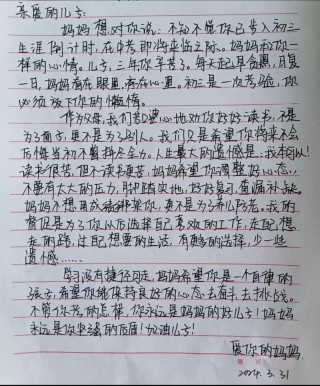 亲爱的儿子:
妈妈想对你说:不知不觉你已步入初三
生涯倒计时,在中考即将来临之际、妈妈和你一
样的心情。儿子,三年你辛苦了。每天起早贪黑,日复
一日,妈妈看在眼里,疼在心里。初三是一次考验,你
必须放下你的懒惰。
作为父母,我们苦口婆心地劝你好好读书,不是
为了面子,更不是为了别人。我们只是希望你将来不会
后悔当初不曾拼尽全力。人生最大的遗憾是:我本可以!
读书很苦,但不读书更苦,妈妈希望你调整好心态、
不要有太大的压力,脚踏实地,好好复习,查漏补缺。
妈妈不想用成绩绑架你,更不是为了养儿防老。我的
督促是为了你以后选择自己喜欢的工作,走自己想
走的路,过自己想要的生活,有更多的选择,少一些
遗憾......
学习没有捷径可走,妈妈希望你是一个自律的
孩子,希望你能保持良好的心态去奋斗,去挑战。
不管你考的怎样,你永远是妈妈的好儿子!妈妈
永远是你坚强的后盾!加油儿子!
爱你的妈妈
2024.3.31